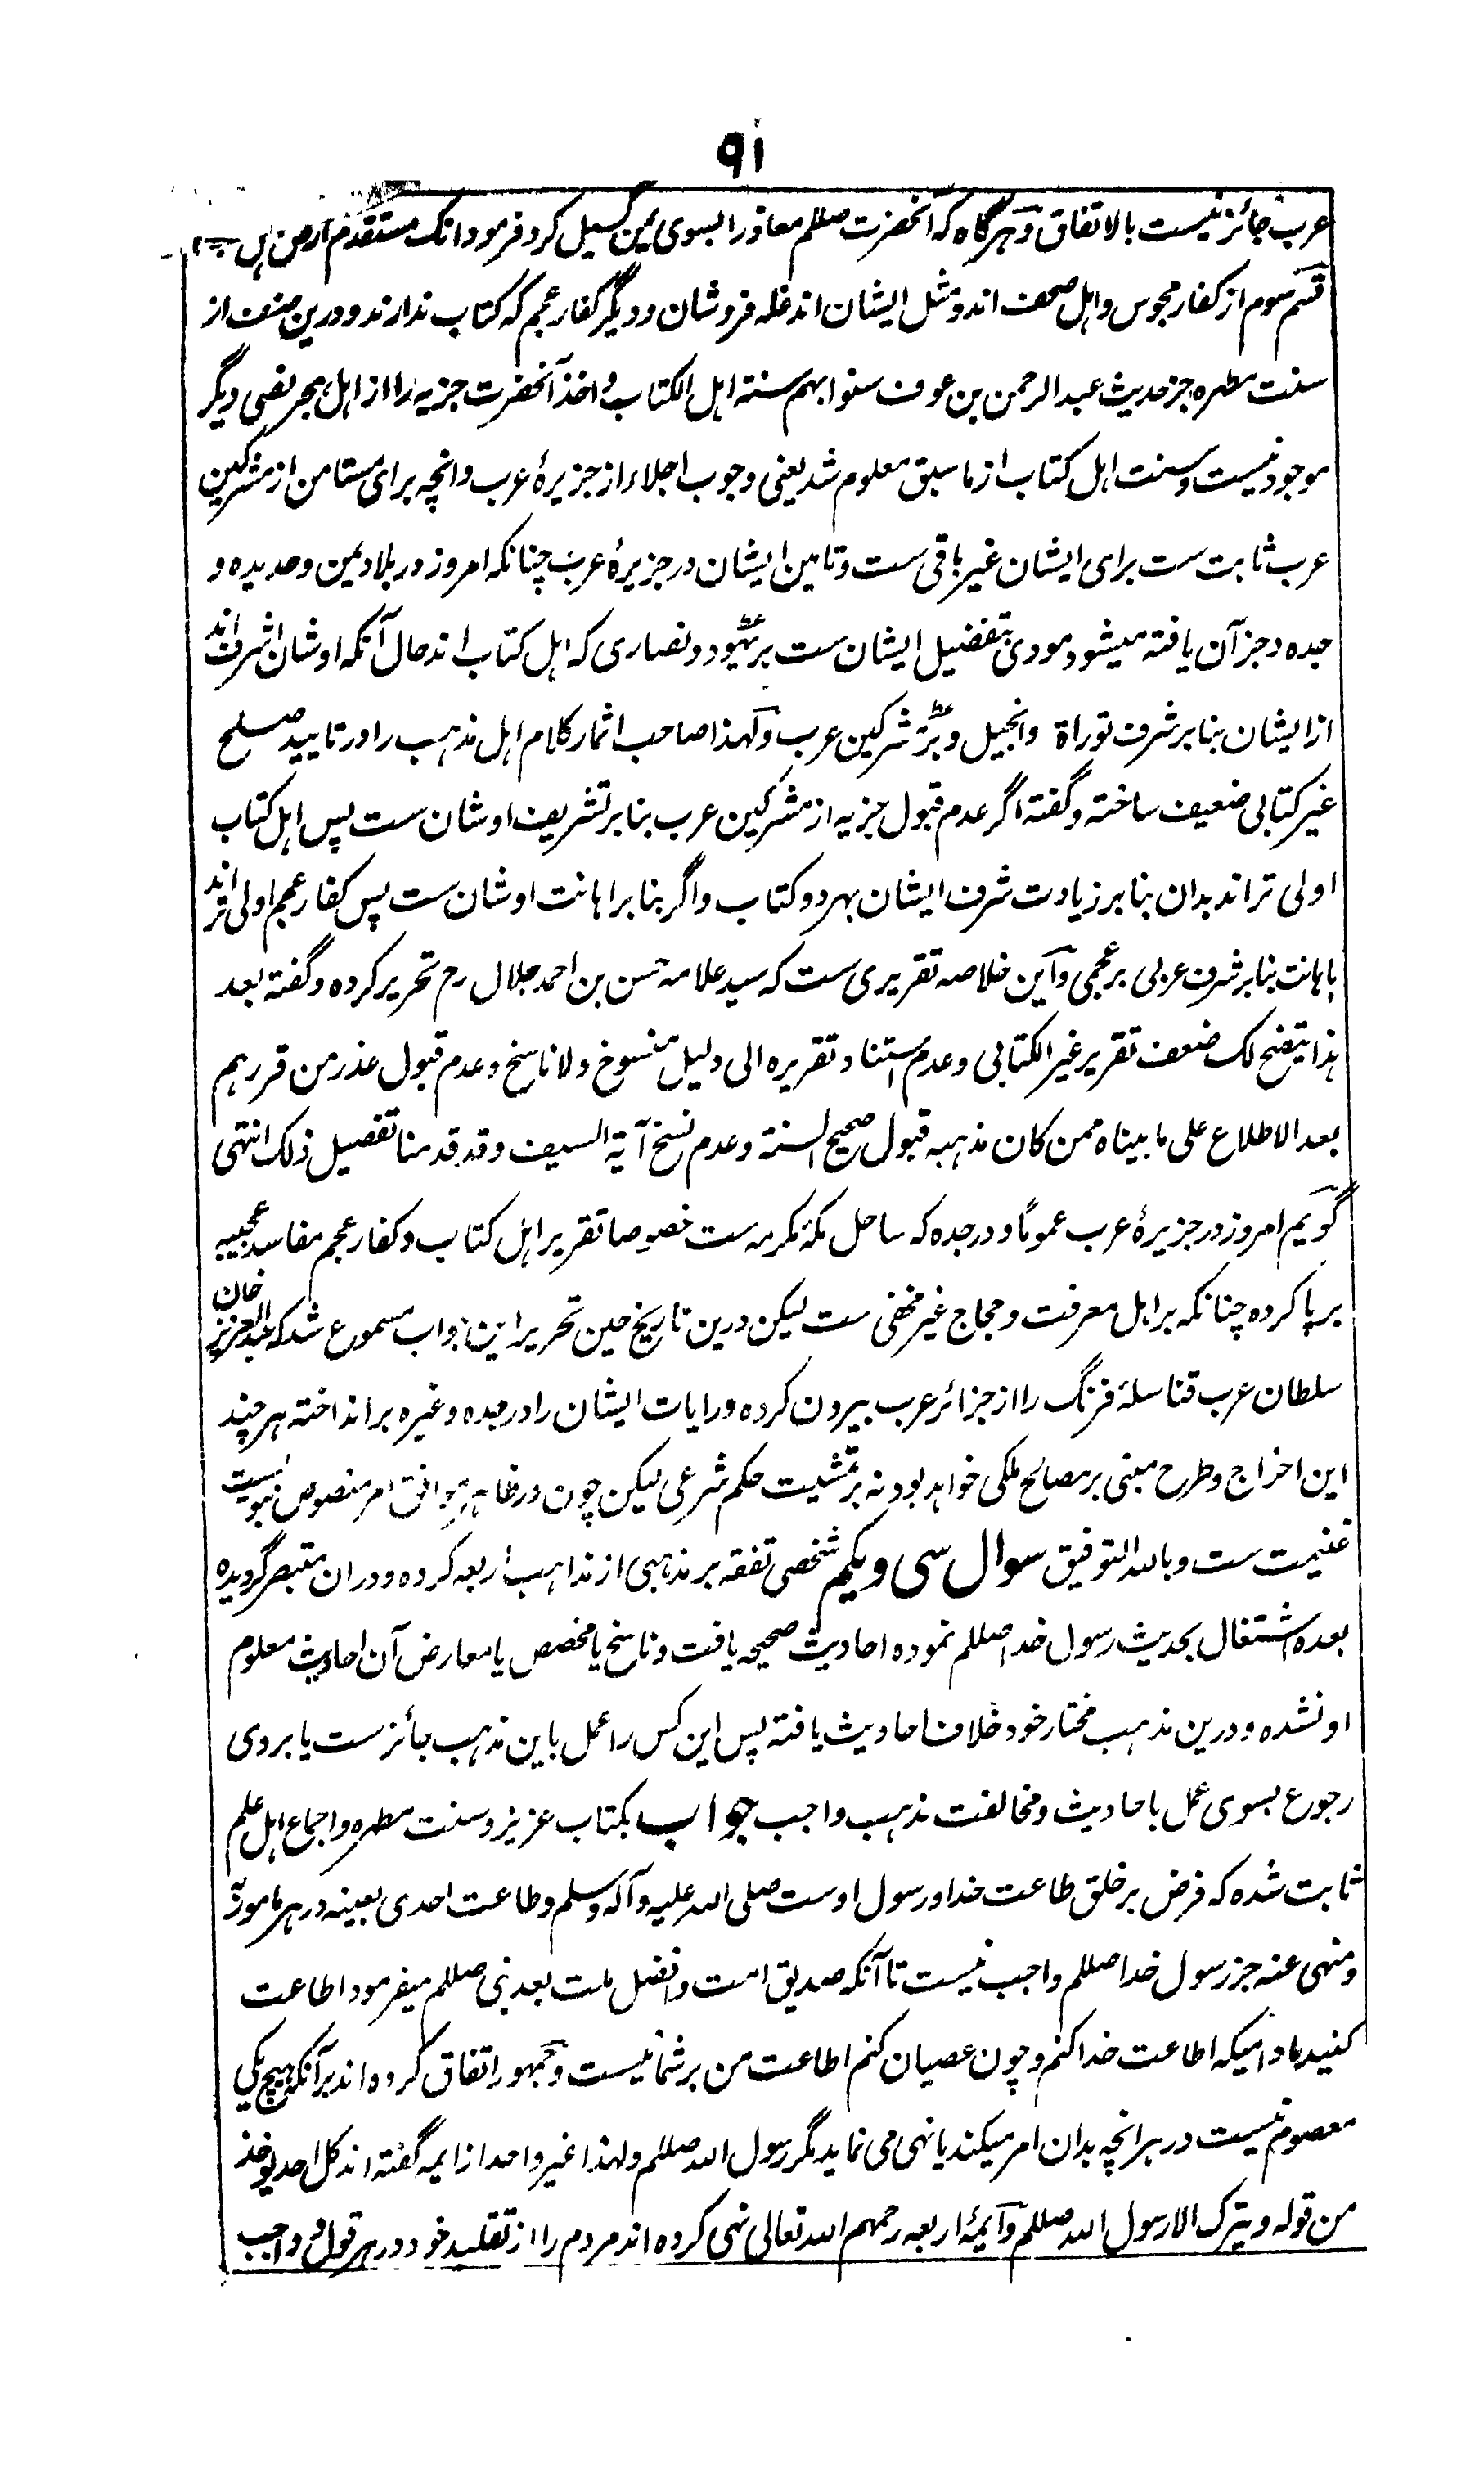 ۹۱
عرب جائز نیست بالاتفاق و هرگاه که آنحضرت صللم معاذ را بسوی یمن گسیل کرد فرمود انک مستقدم ارض اهل
قسم سوم از کفار مجوس و اهل صحف اند و مثل ایشان اند غله فروشان و دیگر کفار عجم که کتاب ندارند و درین صنف از
سنت مطهره جز حدیث عبد الرحمن بن عوف سنوا بهم سنة اهل الکتاب و اخذ آنحضرت جزیه را از اهل هجر نصی دیگر
موجود نیست و سنت اهل کتاب از ما سبق معلوم شد یعنی وجوب اجلاء از جزیرهٔ عرب و انچه برای مستامن از مشرکین
عرب ثابت ست برای ایشان غیر باقی ست و تامین ایشان در جزیرهٔ عرب چنانکه امروز در بلاد یمن و حدیده و
جده و جز آن یافته میشود مودی بتفضیل ایشان ست بر یهود و نصاری که اهل کتاب اند حال آنکه اوشان اشرف اند
از ایشان بنا بر شرف توراة و انجیل و بر مشرکین عرب و لهذا صاحب اثمار کلام اهل مذهب را در تایید صلح
غیر کتابی ضعیف ساخته و گفته اگر عدم قبول جزیه از مشرکین عرب بنا بر تشریف اوشان ست پس اهل کتاب
اولی تر اند بدان بنا بر زیادت شرف ایشان بهر دو کتاب و اگر بنا بر اهانت اوشان ست پس کفار عجم اولی تر اند
باهانت بنا بر شرف عربی بر عجمی و این خلاصه تقریری ست که سید علامه حسن بن احمد جلال رح تحریر کرده و گفته بعد
هذا یتضح لک ضعف تقریر غیر الکتابی و عدم استناد تقریره الی دلیل منسوخ و لا ناسخ و عدم قبول عذر من قررهم
بعد الاطلاع علی ما بیناه ممن کان مذهبه قبول صحیح السنة و عدم نسخ آیة السیف و قد قدمنا تفصیل ذلک انتهی
گویم امروز در جزیرهٔ عرب عموماً و در جده که ساحل مکهٔ مکرمه ست خصوصا تقریر اهل کتاب و کفار عجم مفاسد عجیبه
بر پا کرده چنانکه بر اهل معرفت و حجاج غیر مخفی ست لیکن درین تاریخ حین تحریر این جواب مسموع شد که عبد العزیز خان
سلطان عرب قناسلهٔ فرنگ را از جزائر عرب بیرون کرده و رایات ایشان را در جده و غیره بر انداخته هر چند
این اخراج و طرح مبنی بر مصالح ملکی خواهد بود نه بر تمشیت حکم شرعی لیکن چون در ظاهر موافق امر منصوص نبویست
غنیمت ست و بالله التوفیق سوال سی و یکم شخصی تفقه بر مذهبی از مذاهب اربعه کرده و دران متبصر گردیده
بعده اشتغال بحدیث رسول خدا صللم نموده احادیث صحیحه یافت و ناسخ یا مخصص یا معارض آن احادیث معلوم
او نشده و درین مذهب مختار خود خلاف احادیث یافته پس این کس را عمل باین مذهب جائز ست یا بروی
رجوع بسوی عمل باحادیث و مخالفت مذهب واجب جواب بکتاب عزیز و سنت مطهره و اجماع اهل علم
ثابت شده که فرض بر خلق طاعت خدا و رسول اوست صلی الله علیه و آله و سلم و طاعت احدی بعینه در هر مامور به
و منهی عنه جز رسول خدا صللم واجب نیست تا آنکه صدیق امت و افضل ملت بعد نبی صللم میفرمود اطاعت
کنید مادامیکه اطاعت خدا کنم و چون عصیان کنم اطاعت من بر شما نیست و جمهور اتفاق کرده اند بر آنکه هیچ یکی
معصوم نیست در هر انچه بدان امر میکند یا نهی می نماید مگر رسول الله صللم و لهذا غیر واحد از ایمه گفته اند کل احد یوخذ
من قوله و یترک الا رسول الله صللم و ایمهٔ اربعه رحمهم الله تعالی نهی کرده اند مردم را از تقلید خود در هر قول و واجب